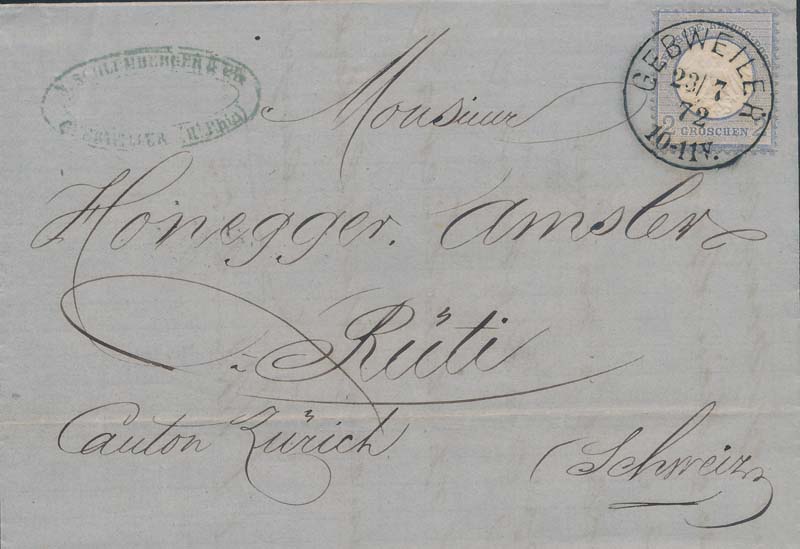 SCHLUMBERGER & Cie
GEBWEILER
23/7
72
10-11V.
2 GROSCHEN
Monsieur
Honegger. Amsler
à Rüti
Canton Zürich
(Schweiz)